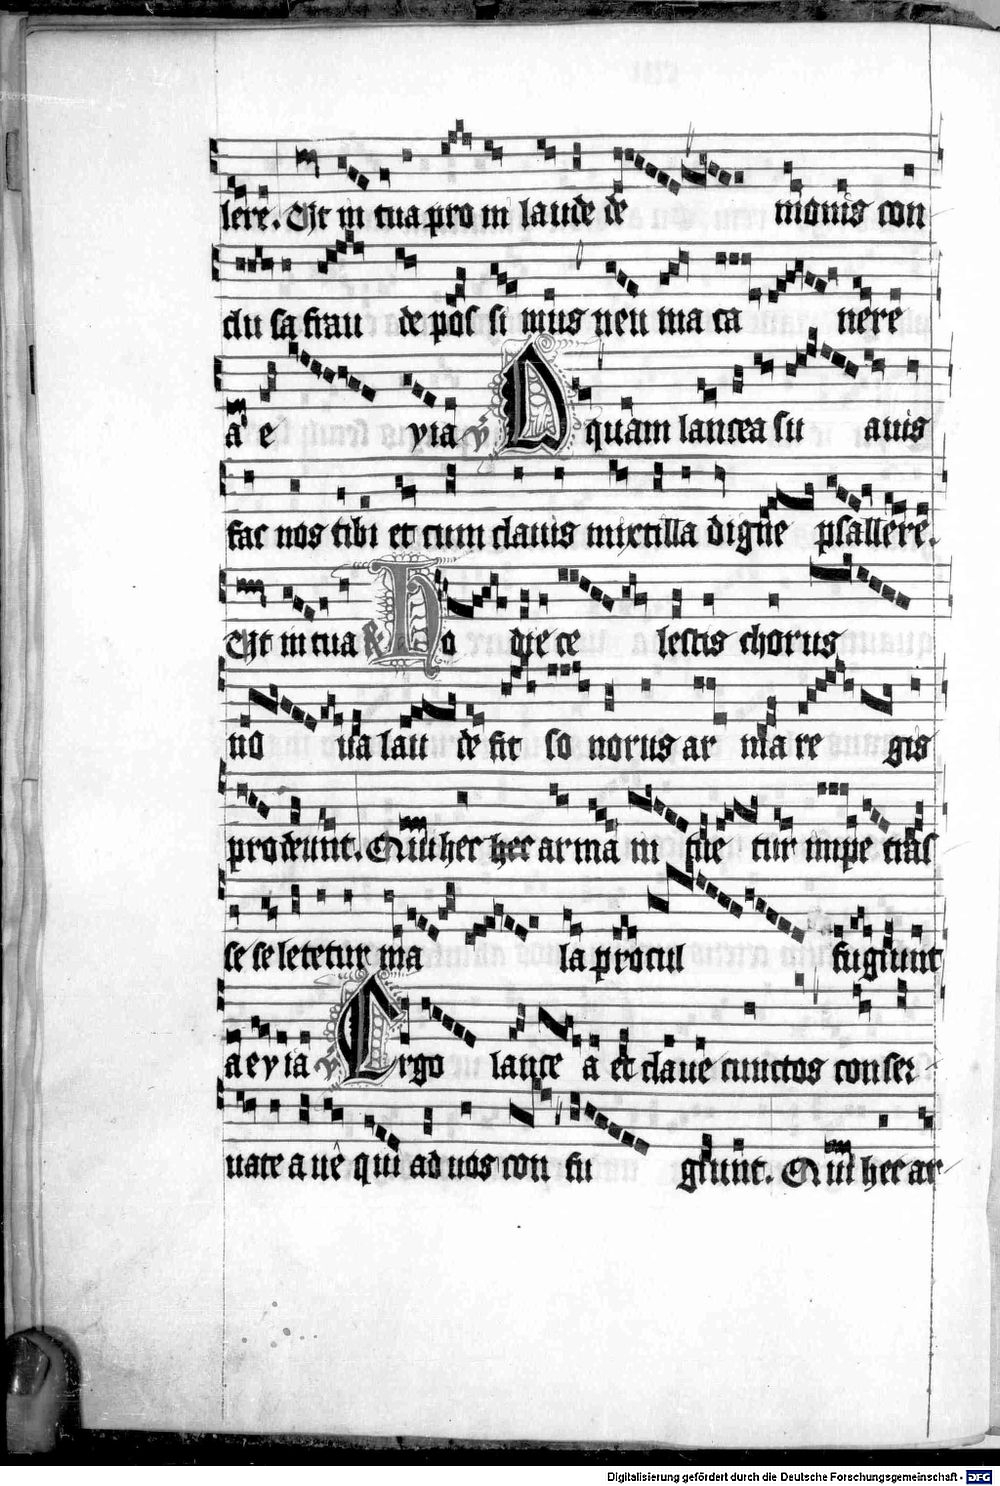 lere. Ut in tua pro in laude de monis con
clu sa frau de pos si mus neu ma ca nere
a e via ℣ O quam lancea su auis
fac nos tibi et cum clauis mixtilla digne psallere.
Ut in tua ℟ Ho die ce lestis chorus
no ua lau de fit so norus ar ma re gis
prodeunt. Quibus hec hec arma ni tue tur impe trās
se se letetur ma la procul fugiunt
aevia ℣ Ergo lance a et claue cunctos confer
uate a ue qui ad uos con fu giunt. Qui hec ar
Digitalisierung gefördert durch die Deutsche Forschungsgemeinschaft - DFG